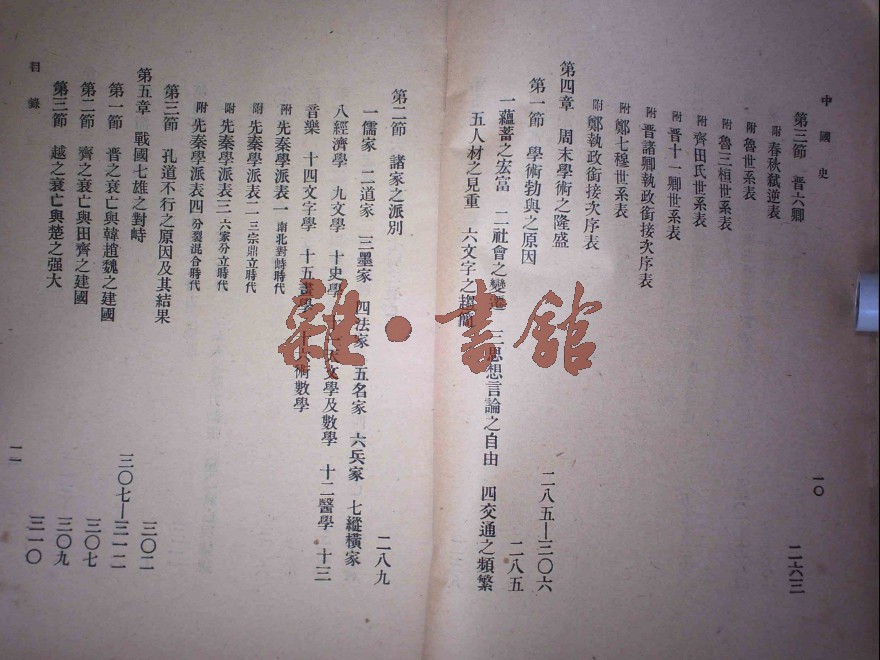 中國史
一〇
第三節 晋六卿 二六三
附 春秋弒逆表
附 魯世系表
附 魯三桓世系表
附 齊田氏世系表
附 晋十一卿世系表
附 晋諸卿執政銜接次序表
附 鄭七穆世系表
附 鄭執政銜接次序表
第四章 周末學術之隆盛 二八五—三〇六
第一節 學術勃興之原因 二八五
一蘊蓄之宏富 二社會之變遷 三思想言論之自由 四交通之頻繁
五人材之見重 六文字之趨簡
第二節 諸家之派別 二八九
一儒家 二道家 三墨家 四法家 五名家 六兵家 七縱橫家
八經濟學 九文學 十史學 十一天文學及數學 十二醫學 十三
音樂 十四文字學 十五畫學 十六術數學
附 先秦學派表一 南北對峙時代
附 先秦學派表二 三宗鼎立時代
附 先秦學派表三 六家分立時代
附 先秦學派表四 分裂混合時代
第三節 孔道不行之原因及其結果 三〇二
第五章 戰國七雄之對峙 三〇七—三一二
第一節 晋之衰亡與韓趙魏之建國 三〇七
第二節 齊之衰亡與田齊之建國 三〇九
第三節 越之衰亡與楚之强大 三一〇
目錄
一一
雜·書館